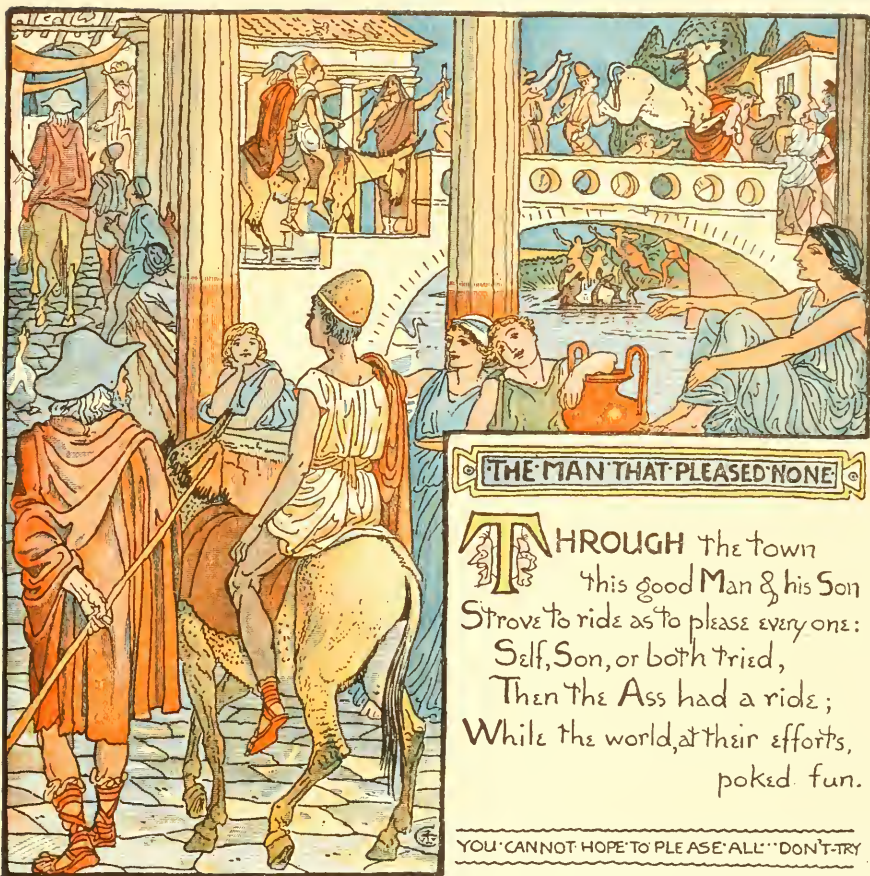 ·THE·MAN·THAT·PLEASED·NONE·
THROUGH the town
this good Man & his Son
Strove to ride as to please everyone:
Self, Son, or both tried,
Then the Ass had a ride;
While the world, at their efforts,
poked fun.
YOU·CANNOT·HOPE·TO·PLEASE·ALL···DON'T·TRY